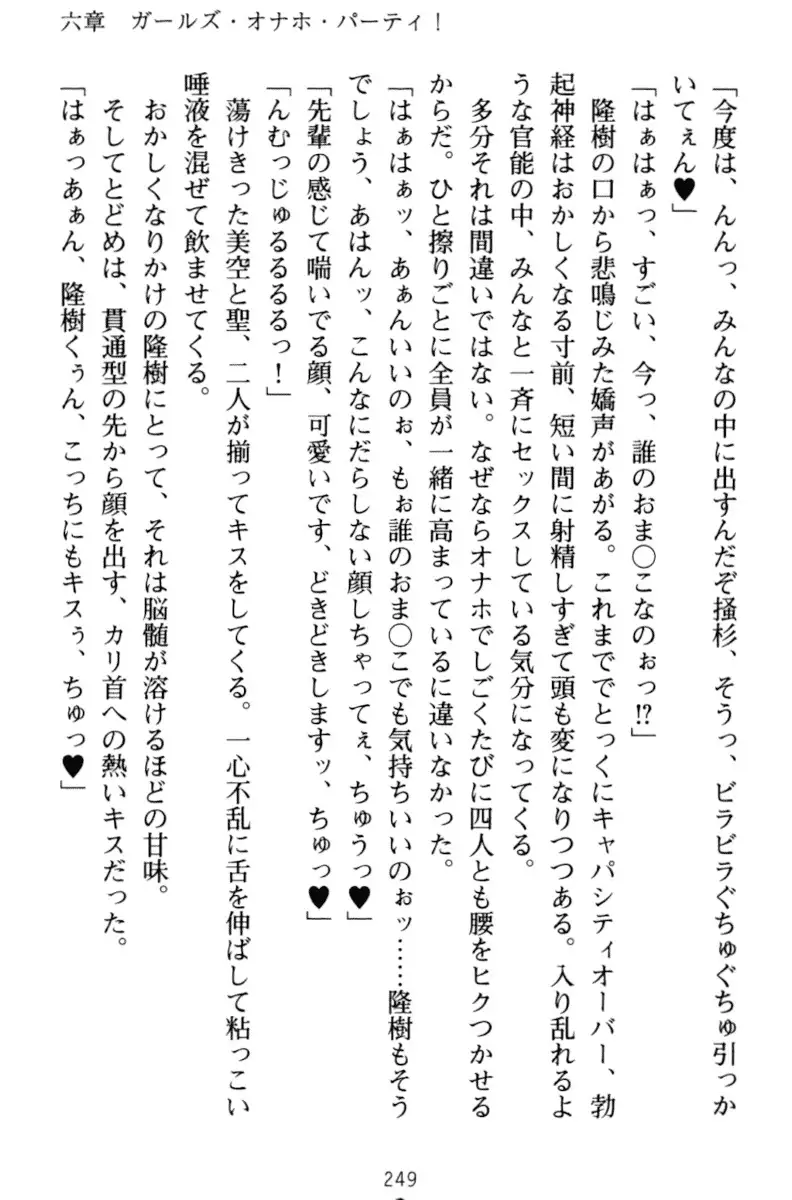 六章　ガールズ・オナホ・パーティ！
「今度は、んんっ、みんなの中に出すんだぞ掻杉、そうっ、ビラビラぐちゅぐちゅ引っか
いてぇん♥」
「はぁはぁっ、すごい、今っ、誰のおま○こなのぉっ!?」
　隆樹の口から悲鳴じみた嬌声があがる。これまででとっくにキャパシティオーバー、勃
起神経はおかしくなる寸前、短い間に射精しすぎて頭も変になりつつある。入り乱れるよ
うな官能の中、みんなと一斉にセックスしている気分になってくる。
　多分それは間違いではない。なぜならオナホでしごくたびに四人とも腰をヒクつかせる
からだ。ひと擦りごとに全員が一緒に高まっているに違いなかった。
「はぁはぁッ、あぁんいいのぉ、もぉ誰のおま○こでも気持ちいいのぉッ……隆樹もそう
でしょう、あはんッ、こんなにだらしない顔しちゃってぇ、ちゅうっ♥」
「先輩の感じて喘いでる顔、可愛いです、どきどきしますッ、ちゅっ♥」
「んむっじゅるるるるっ！」
　蕩けきった美空と聖、二人が揃ってキスをしてくる。一心不乱に舌を伸ばして粘っこい
唾液を混ぜて飲ませてくる。
　おかしくなりかけの隆樹にとって、それは脳髄が溶けるほどの甘味。
　そしてとどめは、貫通型の先から顔を出す、カリ首への熱いキスだった。
「はぁっあぁん、隆樹くぅん、こっちにもキスぅ、ちゅっ♥」
249